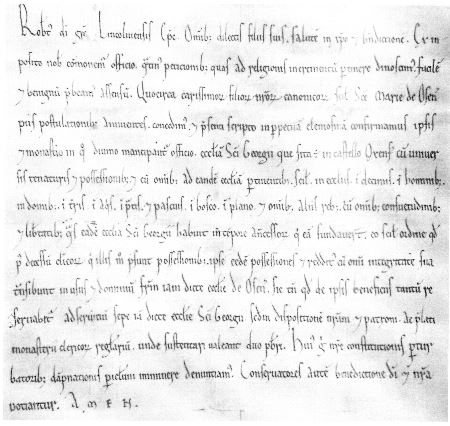 Robt' di gra Lincolniensis Epc. Omib; dilectis filiis suis, salute in xpo & bndictione. Ex in
posito nob comonem officio. petitionib; quas ad religionis incrementu ptinere dinoscim', facile
& benignu pbeam' assensu. Quocirca carissimor filior nror canonicor scil Sce Marie de Osen
piis postulationib; annuentes. concedim', & psenti scripto in ppetua elemosina confirmamus ipsis
& monasterio in q divino mancipant' officio. ecclia Sci Georgii que sita e in castello Oxenef. cu univer
sis tenaturis & possessionib; & cu omib; ad eande eccliam ptinentib;. scil. in ecclesiis. i decimis. i hominib;.
in domib;. i tris. i aqis. i pratis. & pascuis. i bosco. i plano. & omib; aliis reb;. cu omib; consuetudinib;
& libertatib; qas eade ecclia Sci Georgii habuit in tepore antecessor q ea fundaverut. eo scil ordine qd
p decessu clicor. q illis m psunt possessionib;. ipse eede possessiones & reddit' cu omi integritate sua
transibunt in usus & dominiu frm iam dicte ecclie de Osen. hoc tn qd de ipsis beneficiis tantu re
servabit' ad servitiu sepe ia dicte ecclie Sci Georgii scdm dispositione nram & patroni. ac plati
monasterii clericor regulariu. unde sustentari valeant duo pbri. Hui' g nre constitutionis ptur
batorib; dapnationis piculum imminere denuntiam'. Conservatores aute benedictione di & nra
potiantur. A M E N.